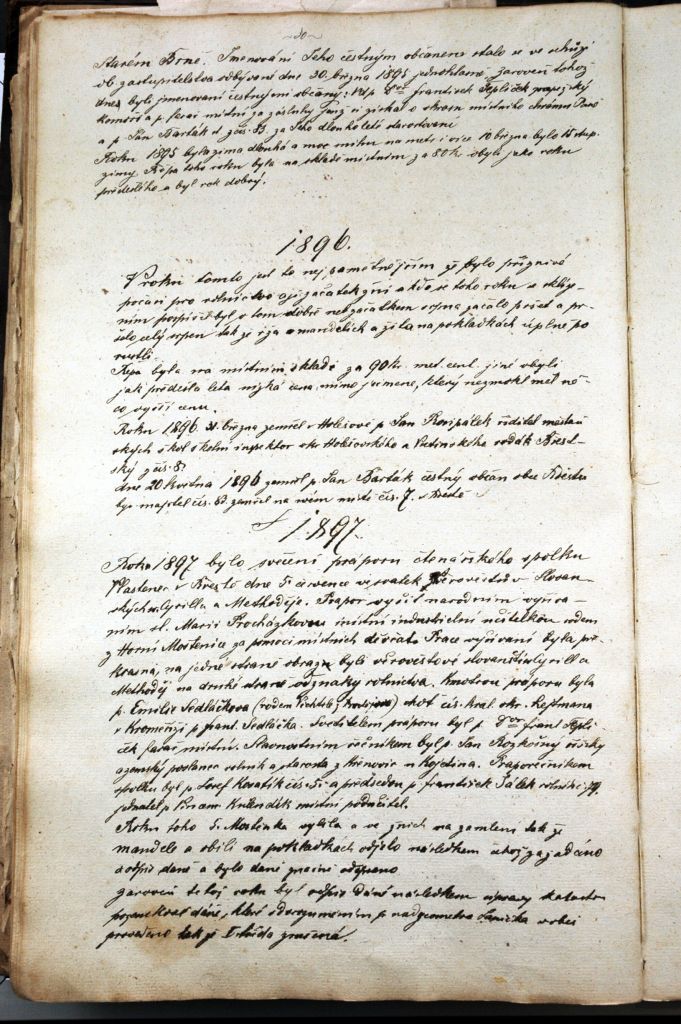 Starém Brně. Jmenování Jeho čestným občanem stalo se ve schůzi
ob. zastupitelstva odbývané dne 30. března 1895 jednohlasně, zároveň tohož
dne byli jmenovaní čestnými občany: Vdp. Dor František Teplíček papežský
komoří a p. farář místní za zásluhy jenž si získal o okrasu místního chrámu Páně
a p. Jan Barták z čís. 53. za Jeho dlouholeté starostování
Roku 1895 byla zima dlouhá a moc sněhu na metr i více 10 března bylo 15 stup.
zimy. Řepa toho roku byla na skladě místním za 80 kr obylí jako roku
předešlého a byl rok dobrý.
1896.
V roku tomto jest to nej pamětnějším že bylo příznivé
počasí pro rolnictvo a již začátek žní a kdo si toho roku se skliz-
ním pospíšil byl o tom dobře neb začátkem srpna začalo pršet a pr-
šelo celý srpen tak že rža a mandelích a žita na pokládkách úplně po
rostli.
Řepa byla na místním skladě za 90 kr. met. cent. jiné obylí
jak předešlá léta nízká cena, mimo ječmene, který nezmokl měl ně-
co vyšší cenu.
Roku 1896 31. března zemřel v Holešově p. Jan Rosípálek řiditel měšťan
ských škol školní inspektor okr. Holešovského a rodák Břest-
ský z čís. 8.
dne 20 května 1896 zemřel p. Jan Barták čestný občan obce Břestu
byv. majitel čís. 53. zemřel na svém místě čís. 7. v Břestě
1897.
Roku 1897 bylo svěcení práporu čtenářského spolku
Vlastenec v Břestě dne 5. července ve svátek věrověstův Slovan-
ských sv. Cyrilla a Methoděje. Prapor vyšit národním vyšívá-
ním sl. Marií Procházkovou místní industrielní učitelkou rodem
z Horní Moštěnice za pomoci místních děvčat. Práce vyšívaní byla pře-
krasná, na jedné straně obrazu byli věrověstové slovanští sv. Cyrill a
Methoděj na druhé straně odznaky rolnictva. Kmotrou práporu byla
p. Emilie Sedláčková choť cís. král. okr. hejtmana
v Kroměříži p. Frant. Sedláčka. Světitelem práporu byl p. Dor Frant. Teplí-
ček farář místní. Slavnostním řečníkem byl p. Jan Rozkošný říšský
a zemský poslanec rolník a starosta z Hrenovic u Kojetína. Praporečníkem
spolku byl p. Josef Kosatík čís. 51. a předsedou p. František Šálek rolník č. 79.
jednatel p. místní podučitel.
Roku toho ř. Moštěnka vylila a ve žních na zamlení tak že
mandele a obilí na pokládkách odjelo následkem čehož zažádáno
o odpis daně a bylo daně značně odepsáno
Zároveň tohoj roku byl odpis daně následkem úpravy katastru
pozemkové daně, které s dorozuměním p. nadgeometra v obci
provedené tak že I. třída zmešená.